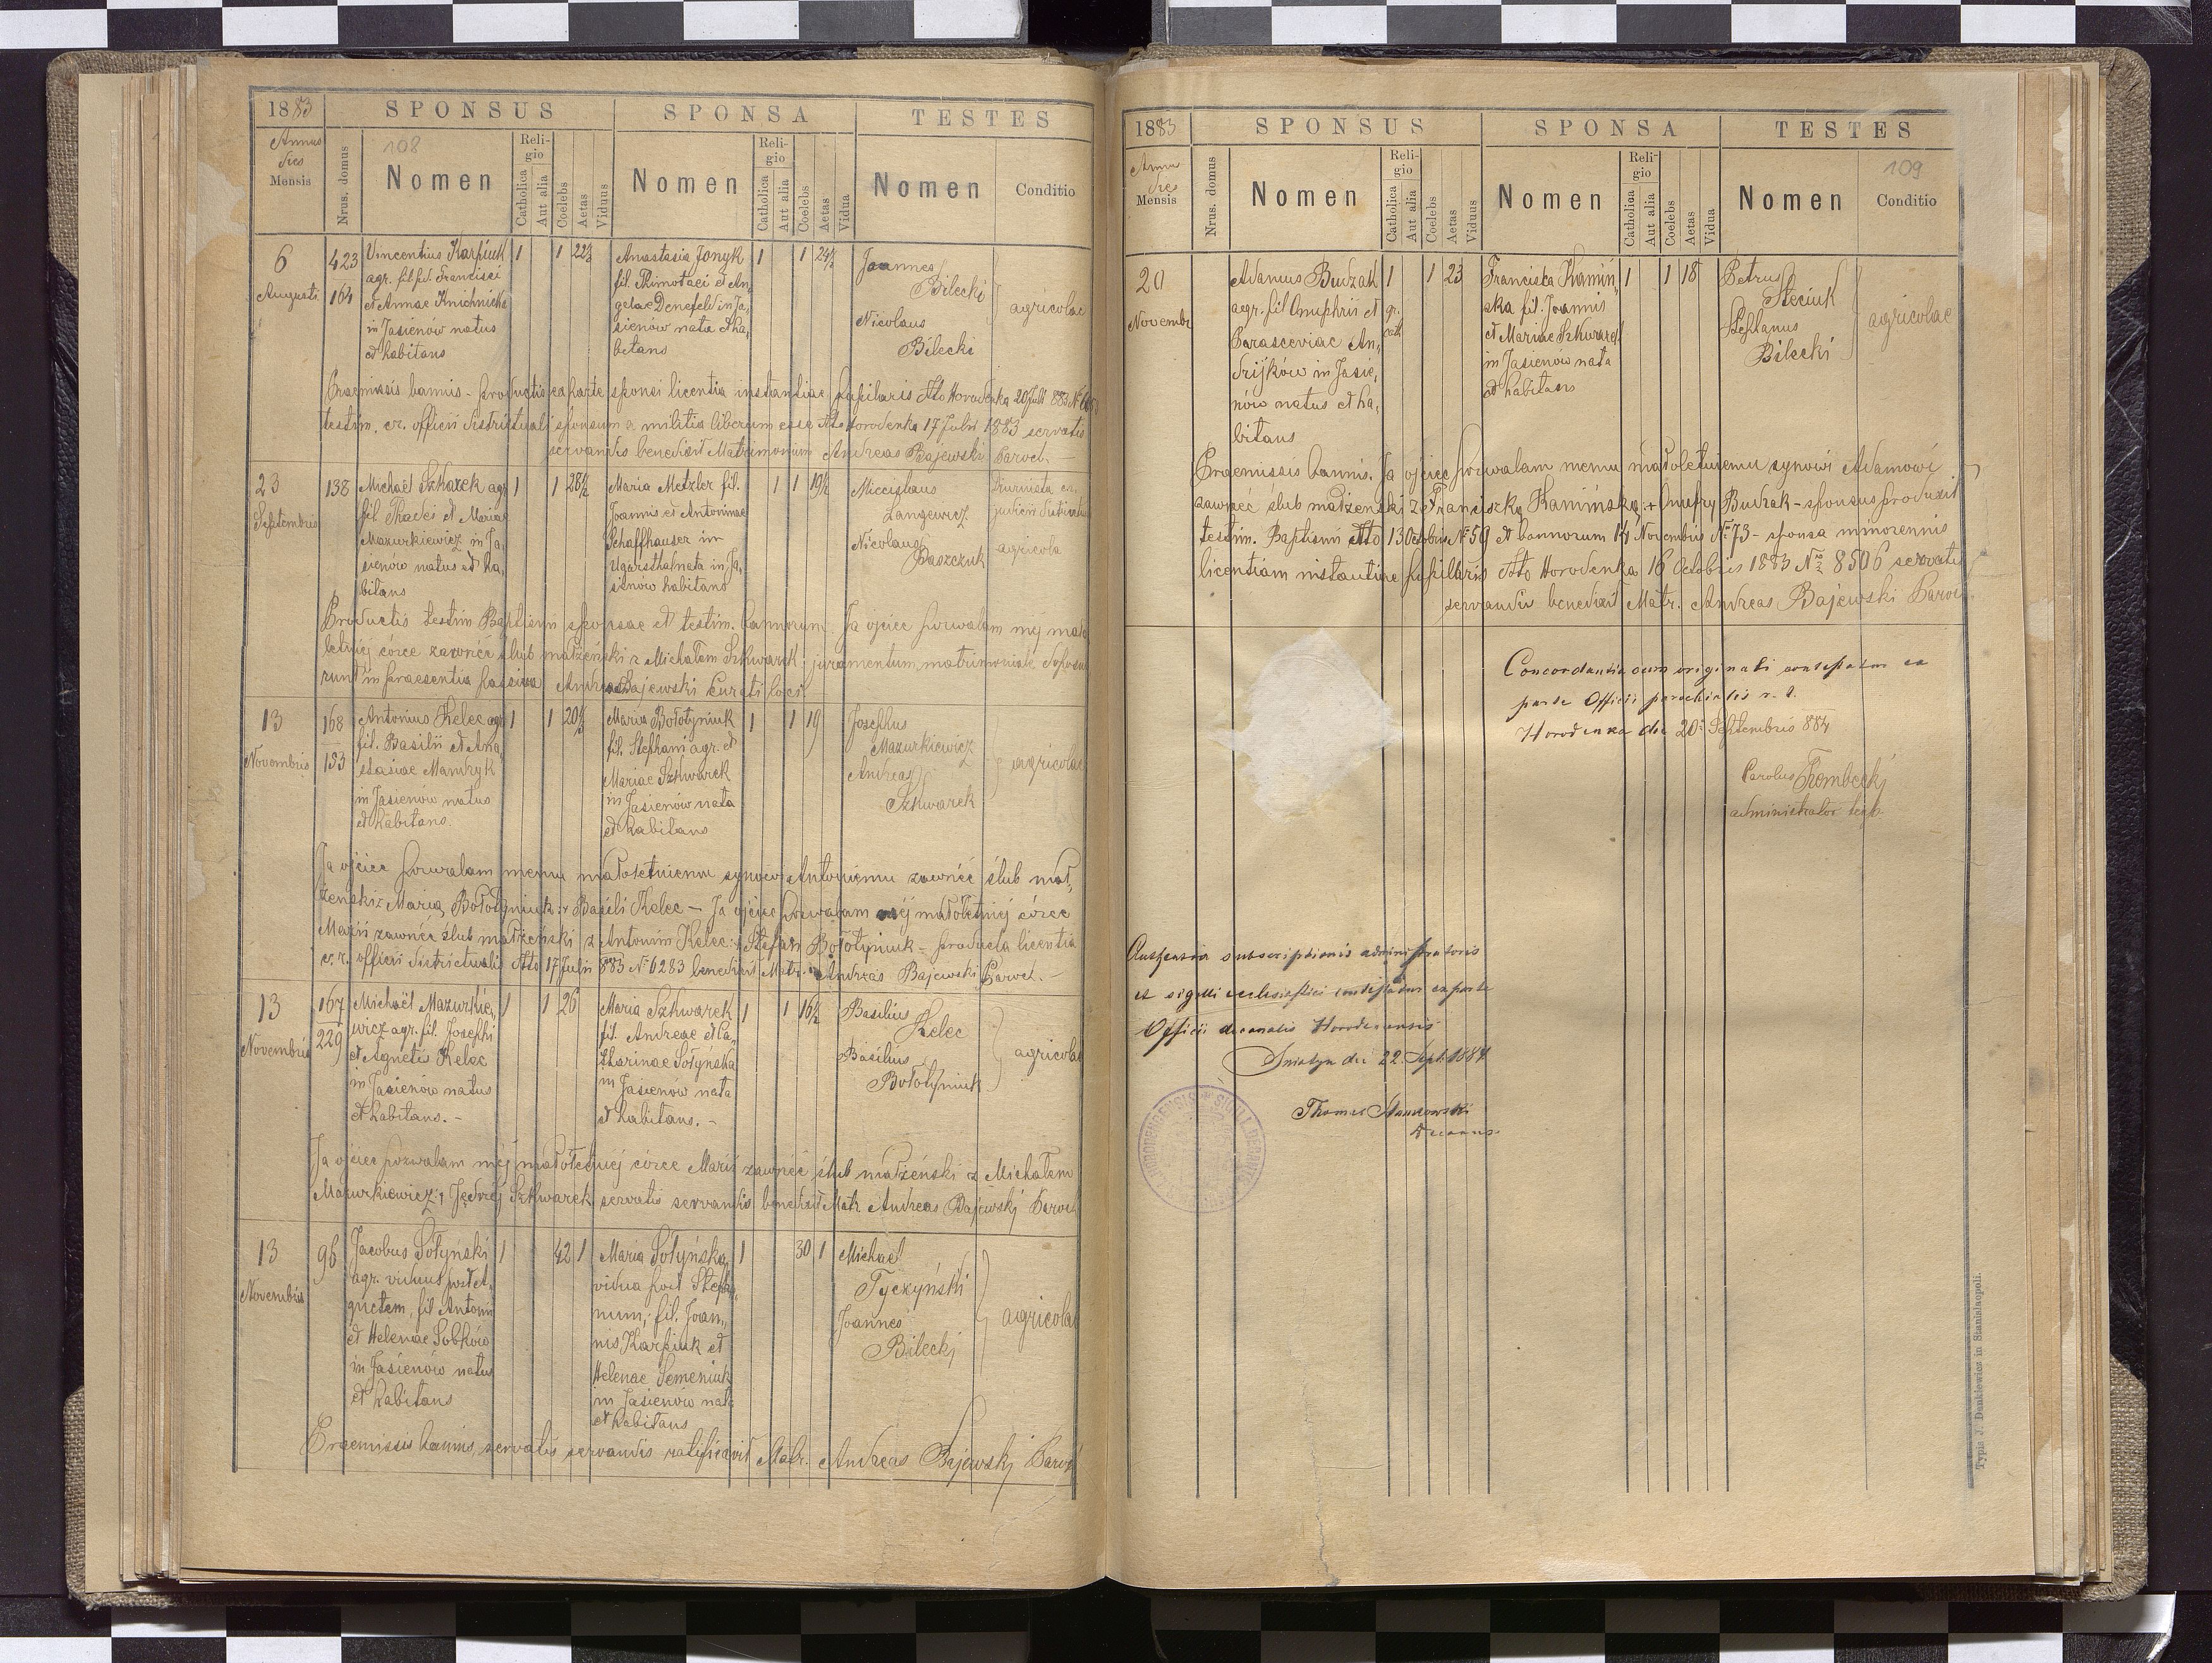 1883
SPONSUS
SPONSA
TESTES
Annus
dies
Mensis
Nrus. domus
108
Nomen
Religio
Catholica
Aut alia
Coelebs
Aetas
Viduus
Nomen
Religio
Catholica
Aut alia
Coelebs
Aetas
Vidua
Nomen
Conditio
6
Augusti
423
164
Vincentius Karpiuk
agr. fil. Francisci
et Annae Knichnicka
in Jasienów natus
et habitans
1
1
Anastasia Jonyk
fil. Thimotaei et An,
gelae Denefeld in Ja,
sienów nata et ha,
bitans
1
1
Joannes
Bilecki
Nicolaus
Bilecki
agricolae
Praemissis bannis - productis ex parte sponsi licentia instantiae pupilaris dto Horodenka 20 Julii 883
testim. cr. officii districtuali sponsum a militia liberum esse dto Horodenka 17 Julii 1883 servatis
servandis benedixit Matrimonium Andreas Bajewski Paroch. -
23
Septembris
138
Michaël Szkwarek agr.
fil. Thadei et Mariae
Mazurkiewicz in Ja,
sienów natus et ha,
bitans
1
1
28 1/2
Maria Metzler fil.
Joannis et Antoninae
Schaffhauser in
Ugarsthal nata in Ja,
sienów habitans
1
1
19 1/2
Miecislaus
Langewicz
Nicolaus
Daszczuk
Diurnista
agricola
Productis testim Baptismi sponsae et testim. bannorum. Ja ojciec pozwalam mej mało
letniej córce zawrzéć ślub małżeński z Michałem Szkwarek; juramentum matrimoniale deposu
runt in praesentia Andreas Bajewski Curati loci
13
Novembris
168
133
Antonius Kelec agr.
fil. Basilii et Ana,
stasiae Mandryk
in Jasienów natus
et habitans.
1
1
Maria Bołotyniuk
fil. Stephani agr. et
Mariae Szkwarek
in Jasienów nata
et habitans
1
1
19
Josephus
Mazurkiewicz
Andreas
Szkwarek
agricolae
Ja ojciec pozwalam memu małoletniemu synowi Antoniemu zawrzéć ślub mał,
żeński z Marią Bołotyniuk + Basili Kelec - Ja ojciec pozwalam mej małoletniej córce
Marii zawrzéć ślub małżeński z Antonim Kelec + Stefan Bołotyniuk - producta licentia
c. r. officii districtualis dto 17 Julii 883 № 6283 benedixit Matr. Andreas Bajewski Paroch. -
13
Novembris
167
229
Michaël Mazurkie,
wicz agr. fil. Josephi
et Agnetis Kelec
in Jasienów natus
et habitans. -
1
1
26
Maria Szkwarek
fil. Andreae et Ca,
tharinae Sołyńska
in Jasienów nata
et habitans. -
1
1
16 1/2
Basilius
Kelec
Basilius
Bołotyniuk
agricolae
Ja ojciec pozwalam mej małoletniej córce Marii zawrzéć ślub małżeński z Michałem
Mazurkiewicz; + Jędrzej Szkwarek servatis servandis benedixit Matr. Andreas Bajewski Paroch
13
Novembris
96
Jacobus Sołyński
agr. viduus post A,
gnetem, fil Antonii
et Helenae Sobków
in Jasienów natus
et habitans
1
42
1
Maria Sołyńska,
vidua post Stepha,
num, fil. Joan,
nis Karpiuk et
Helenae Semeniuk
in Jasienów nata
et habitans
1
30
1
Michael
Tyczyński
Joannes
Bilecki
agricolae
Praemissis bannis, servatis servandis ratificavit Matr. Andreas Bajewski Paroch
1883
SPONSUS
SPONSA
TESTES
Annus
dies
Mensis
Nrus. domus
Nomen
Religio
Catholica
Aut alia
Coelebs
Aetas
Viduus
Nomen
Religio
Catholica
Aut alia
Coelebs
Aetas
Vidua
Nomen
109
Conditio
20
Novembr
Adamus Budzak
agr. fil Onuphrii et
Parasceviae An,
drijków in Jasie,
nów natus et ha,
bitans
1
gr.
cath
1
23
Franciska Kamiń,
ska fil. Joannis
et Mariae Szkwarek
in Jasienów nata
et habitans
1
1
18
Petrus
Steciuk
Stephanus
Bilecki
agricolae
Praemissis bannis. Ja ojciec pozwalam memu małoletniemu synowi Adamowi
zawrzéć ślub małżeński z Franciszką Kamińską; + Onufry Budzak - sponsus produxit
testim. Baptismi dto 13 Octobris № 59 et bannorum 14 Novembris № 73 - sponsa minorennis
licentiam instantiae pupillaris dto Horodenka 16 Octobris 1883 № 8506 servatis
servandis benedixit Matr. Andreas Bajewski Paroch
Concordantia cum originali contestatur ex
parte Officii parochialis r. l.
Horodenka die 20 Septembris 884
Carolus Trombecki
administrator
subscriptionis administratoris
et sigilli ecclesiastici contestatur ex parte
Officii decanalis Horodencensis
Sniatyn die 22. Sept. 1884
Decanus
Typis J. Dankiewicz in Stanislaopoli.